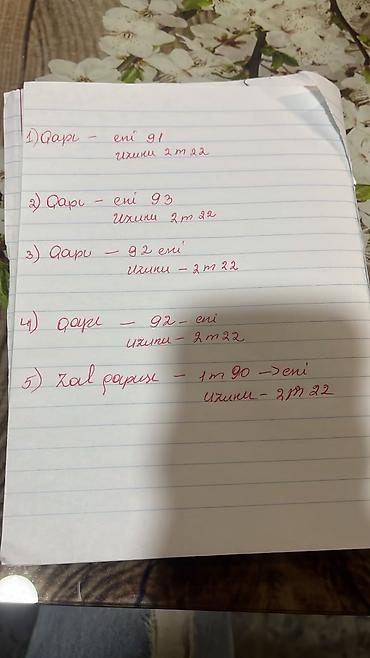 1) Qapı - eni 91
uzunu 2m 22
2) Qapı - eni 93
uzunu 2m 22
3) Qapı - 92 eni
uzunu - 2m 22
4) Qapı - 92 - eni
uzunu - 2m 22
5) Zal qapısı - 1m 90 -> eni
uzunu - 2m 22